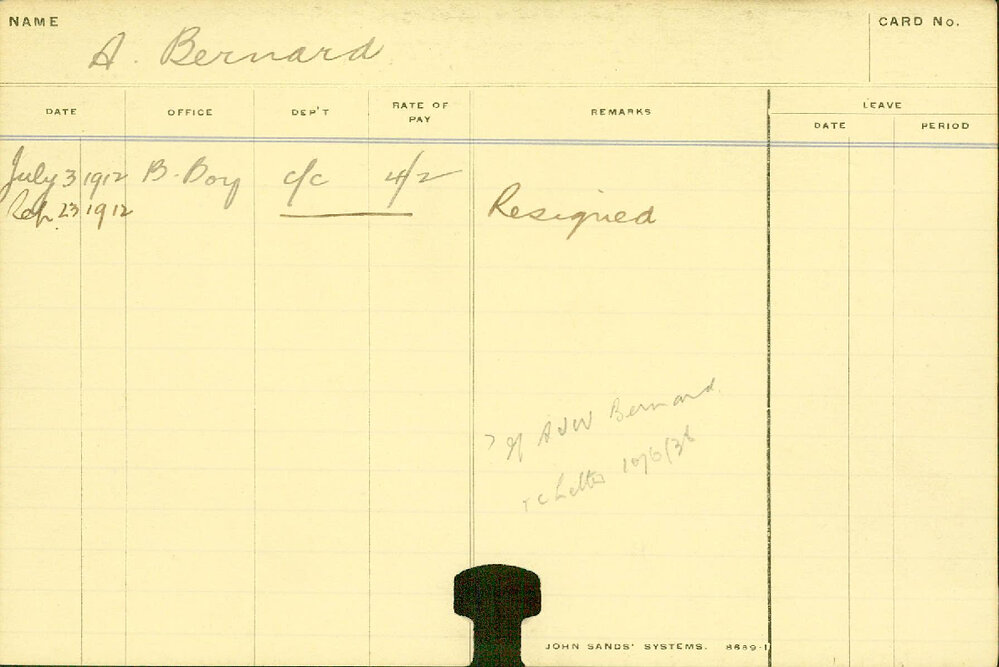 NAME
A. Bernard
CARD No.
DATE OFFICE DEP'T RATE OF PAY REMARKS LEAVE
DATE PERIOD
July 3 1912 B. Boy c/c 4/2
Sep. 23 1912 Resigned
Bernard
Letter 10/6/38
JOHN SANDS' SYSTEMS. 8689-1